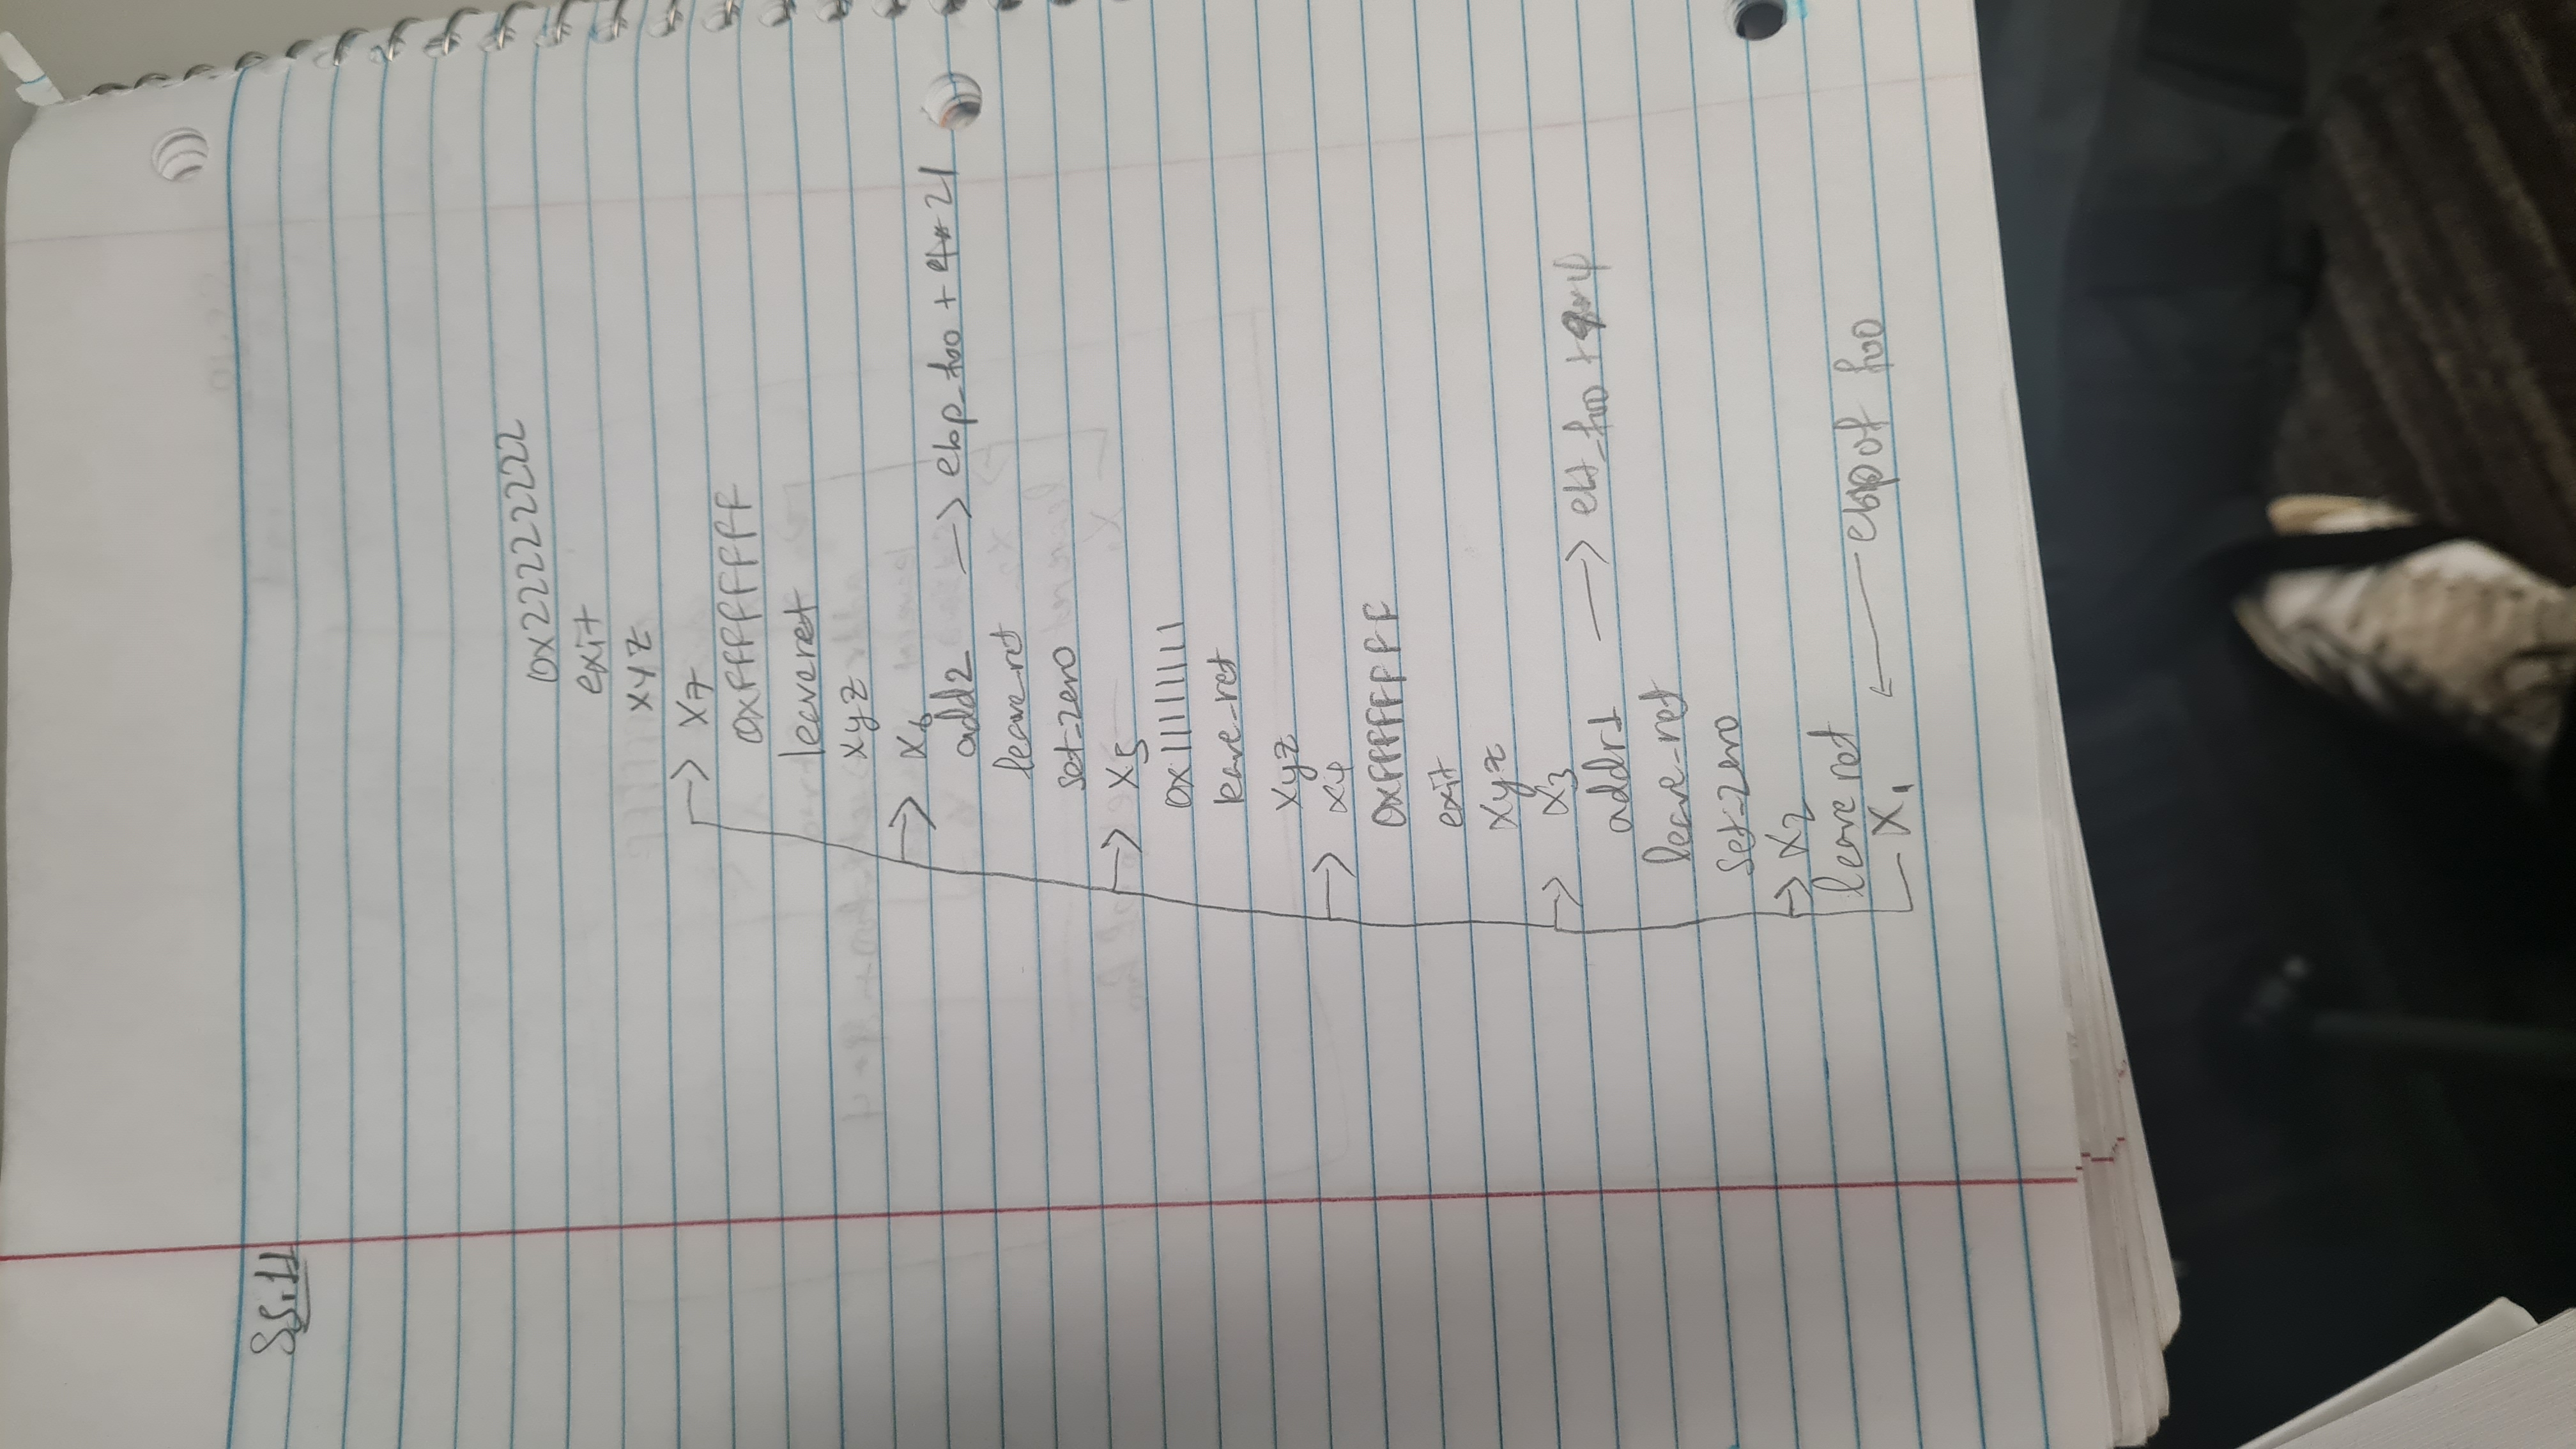 SS.11
0x22222222
exit
xyz
x7
0xffffffff
leaveret
xyz
x6
add2 → ebp_foo + 4* 21
leave ret
set-zero
x5
0x11111111
leave-ret
xyz
x4
0xffffffff
exit
xyz
x3
addr1 → foo
leave-ret
set-zero
x2
leave ret
X1 ← ebp of foo